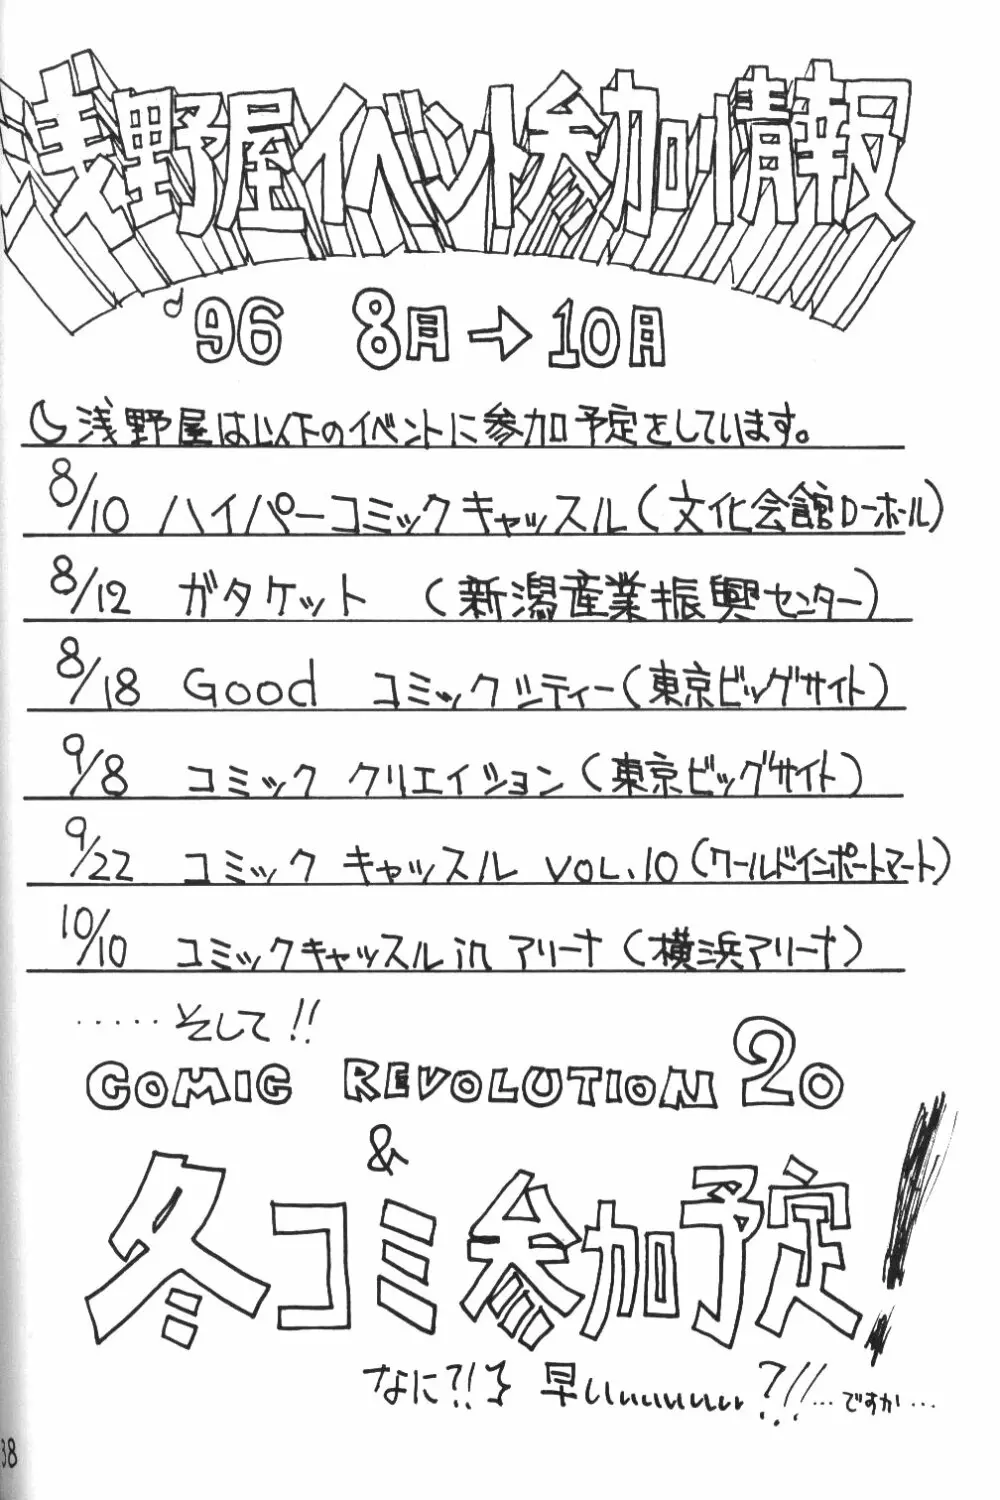 浅野屋イベント参加情報
'96 8月→10月
浅野屋は以下のイベントに参加予定をしています。
8/10 ハイパーコミックキャッスル(文化会館Dーホール)
8/12 ガタケット (新潟産業振興センター)
8/18 Good コミックシティー(東京ビッグサイト)
9/8 コミック クリエイション(東京ビッグサイト)
9/22 コミック キャッスル VOL.10(ワールドインポートマート)
10/10 コミックキャッスル in アリーナ(横浜アリーナ)
‥‥‥そして!!
COMIC REVOLUTION 20
&
冬コミ参加予定!
なに?!る 早いぃぃぃぃぃぃ?!!…ですか…
38